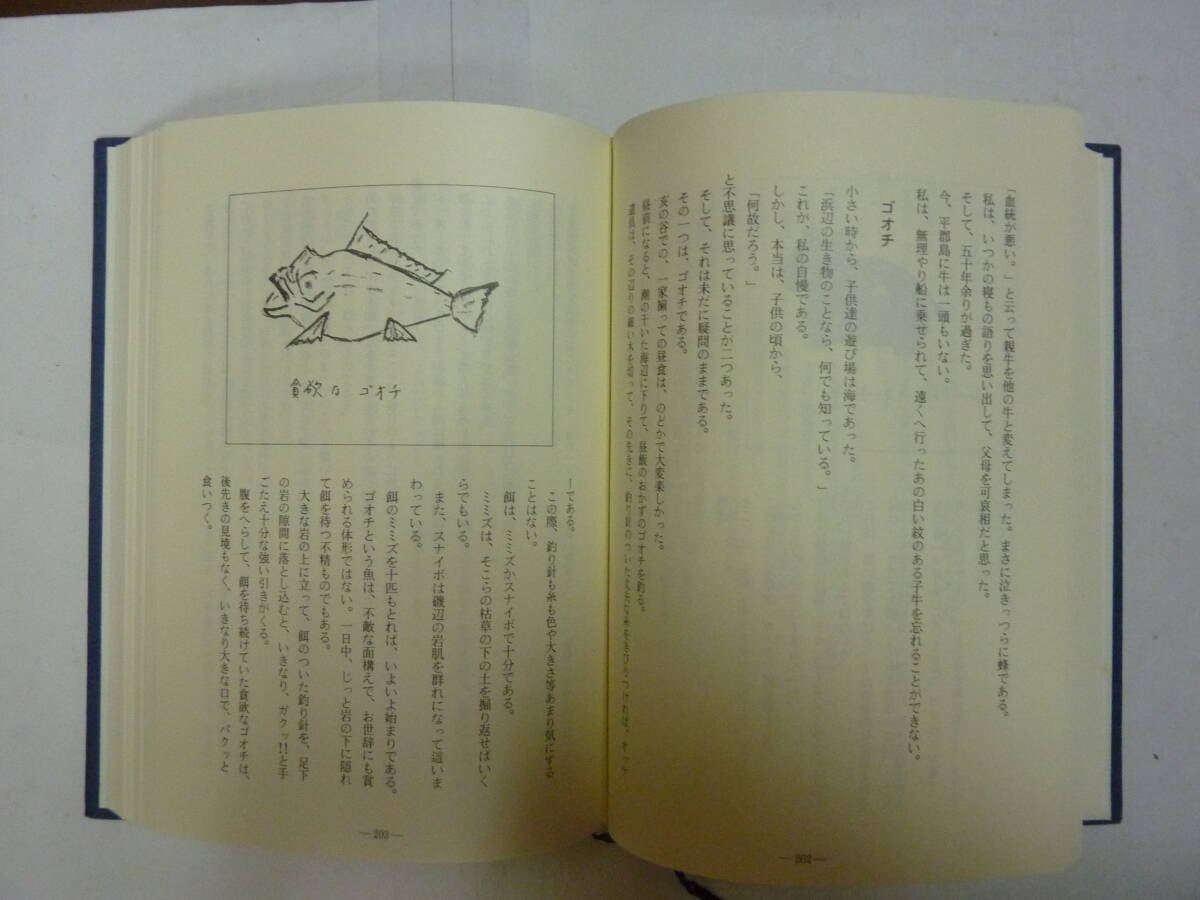 「血統が悪い。」と云って親牛を他の牛と変えてしまった。まさに泣きっつらに蜂である。
私は、いつかの寝もの語りを思い出して、父母を可哀相だと思った。
そして、五十年余りが過ぎた。
今、平郡島に牛は一頭もいない。
私は、無理やり船に乗せられて、遠くへ行ったあの白い紋のある子牛を忘れることができない。
ゴオチ
小さい時から、子供達の遊び場は海であった。
「浜辺の生き物のことなら、何でも知っている。」
これが、私の自慢である。
しかし、本当は、子供の頃から、
「何故だろう。」
と不思議に思っていることが二つあった。
そして、それは未だに疑問のままである。
その一つは、ゴオチである。
亥の谷での、一家揃っての昼食は、のどかで大変楽しかった。
昼前になると、潮の干いた海辺に下りて、昼飯のおかずのゴオチを釣る。
道具は、その辺りの細い木を切って、その先きに、釣り針のついた丈夫な糸をきびりつければ、オッケ
—202—
貪欲な ゴオチ
ーである。
この際、釣り針も糸も色や大きさ等あまり気にする
ことはない。
餌は、ミミズかスナイボで十分である。
ミミズは、そこらの枯草の下の土を掘り返せばいく
らでもいる。
また、スナイボは磯辺の岩肌を群れになって這いま
わっている。
餌のミミズを十匹もとれば、いよいよ始まりである。
ゴオチという魚は、不敵な面構えで、お世辞にも賞
められる体形ではない。一日中、じっと岩の下に隠れ
て餌を待つ不精ものでもある。
大きな岩の上に立って、餌のついた釣り針を、足下
の岩の隙間に落とし込むと、いきなり、ガクッ!!と手
ごたえ十分な強い引きがくる。
腹をへらして、餌を待ち続けていた貪欲なゴオチは、
後先きの見境もなく、いきなり大きな口で、パクッと
食いつく。
—203—